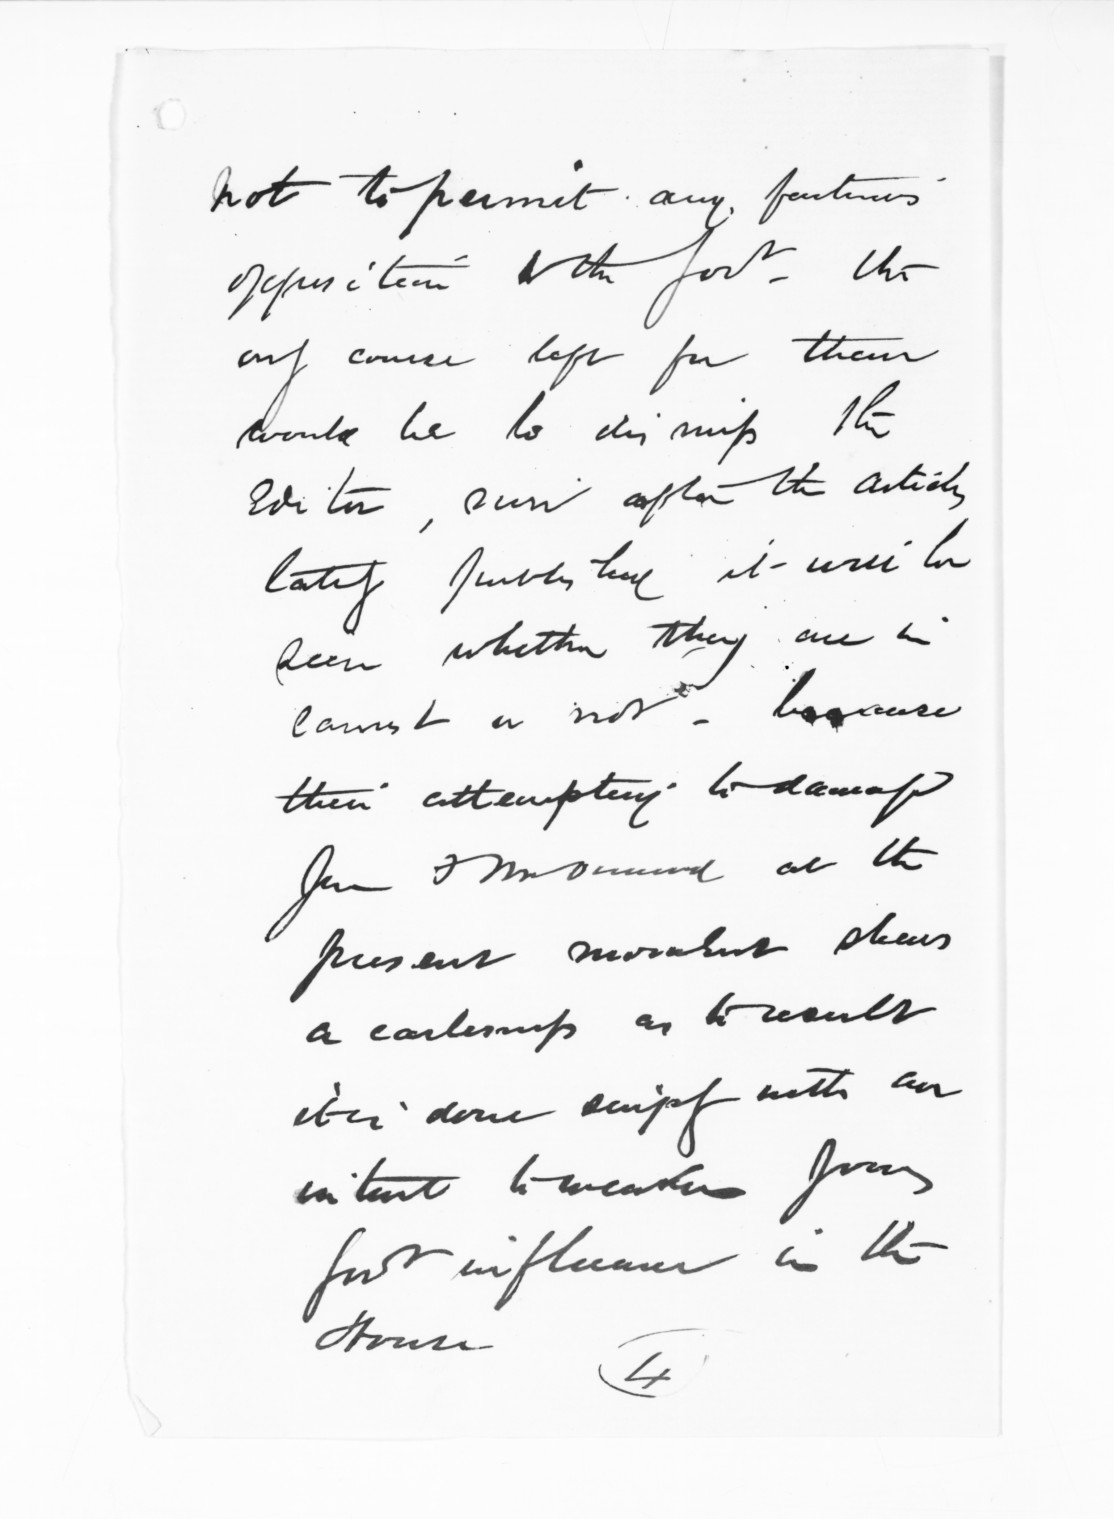 not to permit any factious
opposition to the Govt - the
only course left for them
would be to dismiss the
Editor, even after the articles
lately published it will be
seen whether they are in
earnest or not - because
their attempting to damage
Jno F McDonnell at the
present moment shews
a carelessness as to result
it is done simply with an
intent to weaken your
Govt influence in the
House
4